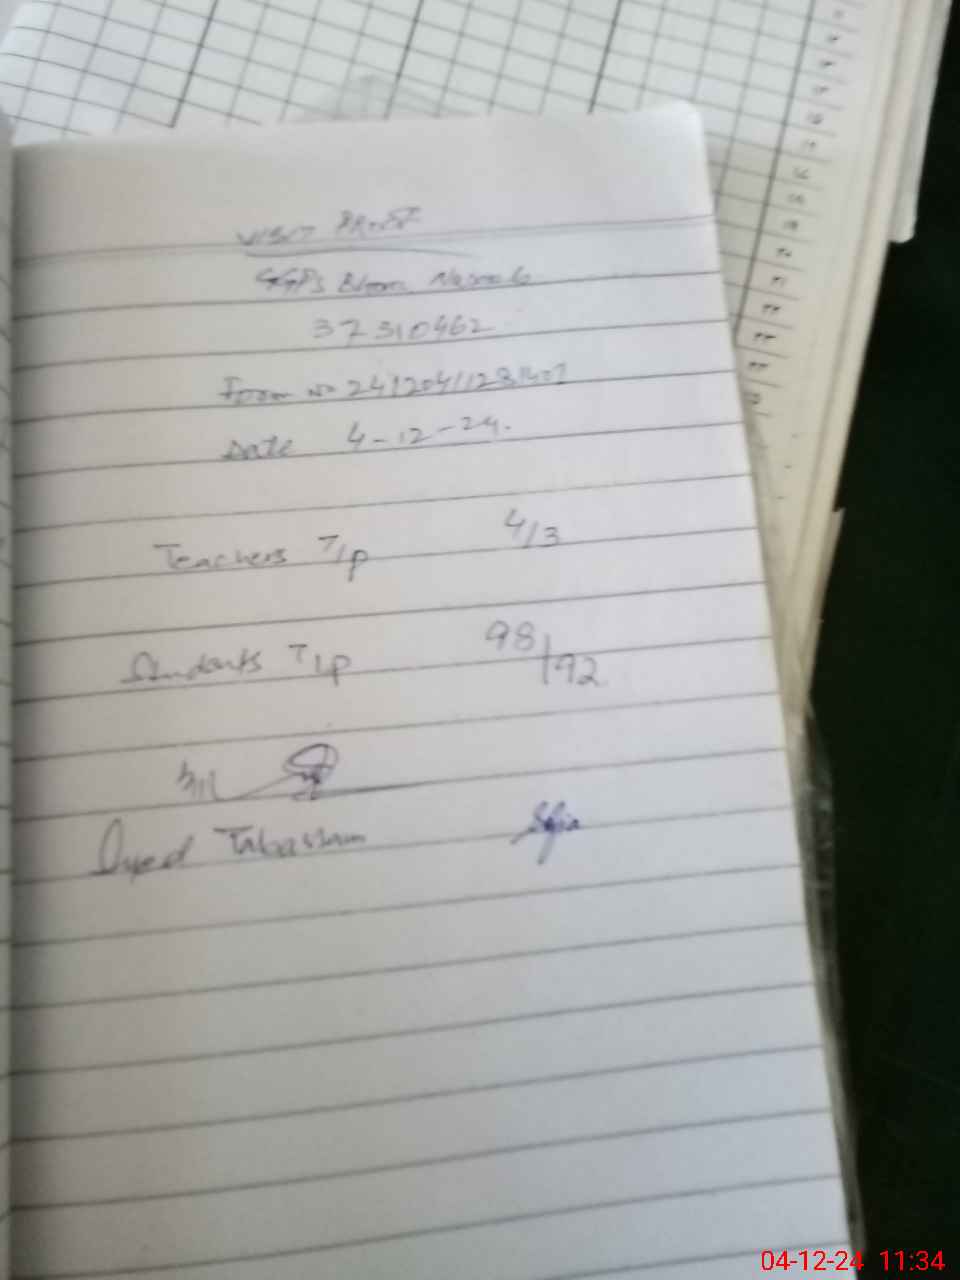 VISIT PROOF
GGPS
37310462
Form No 24120411281407
Date 4-12-24.
Teachers T/P 4/3
Students T/P 98/92
Syed Tabassam
Sofia
04-12-24 11:34